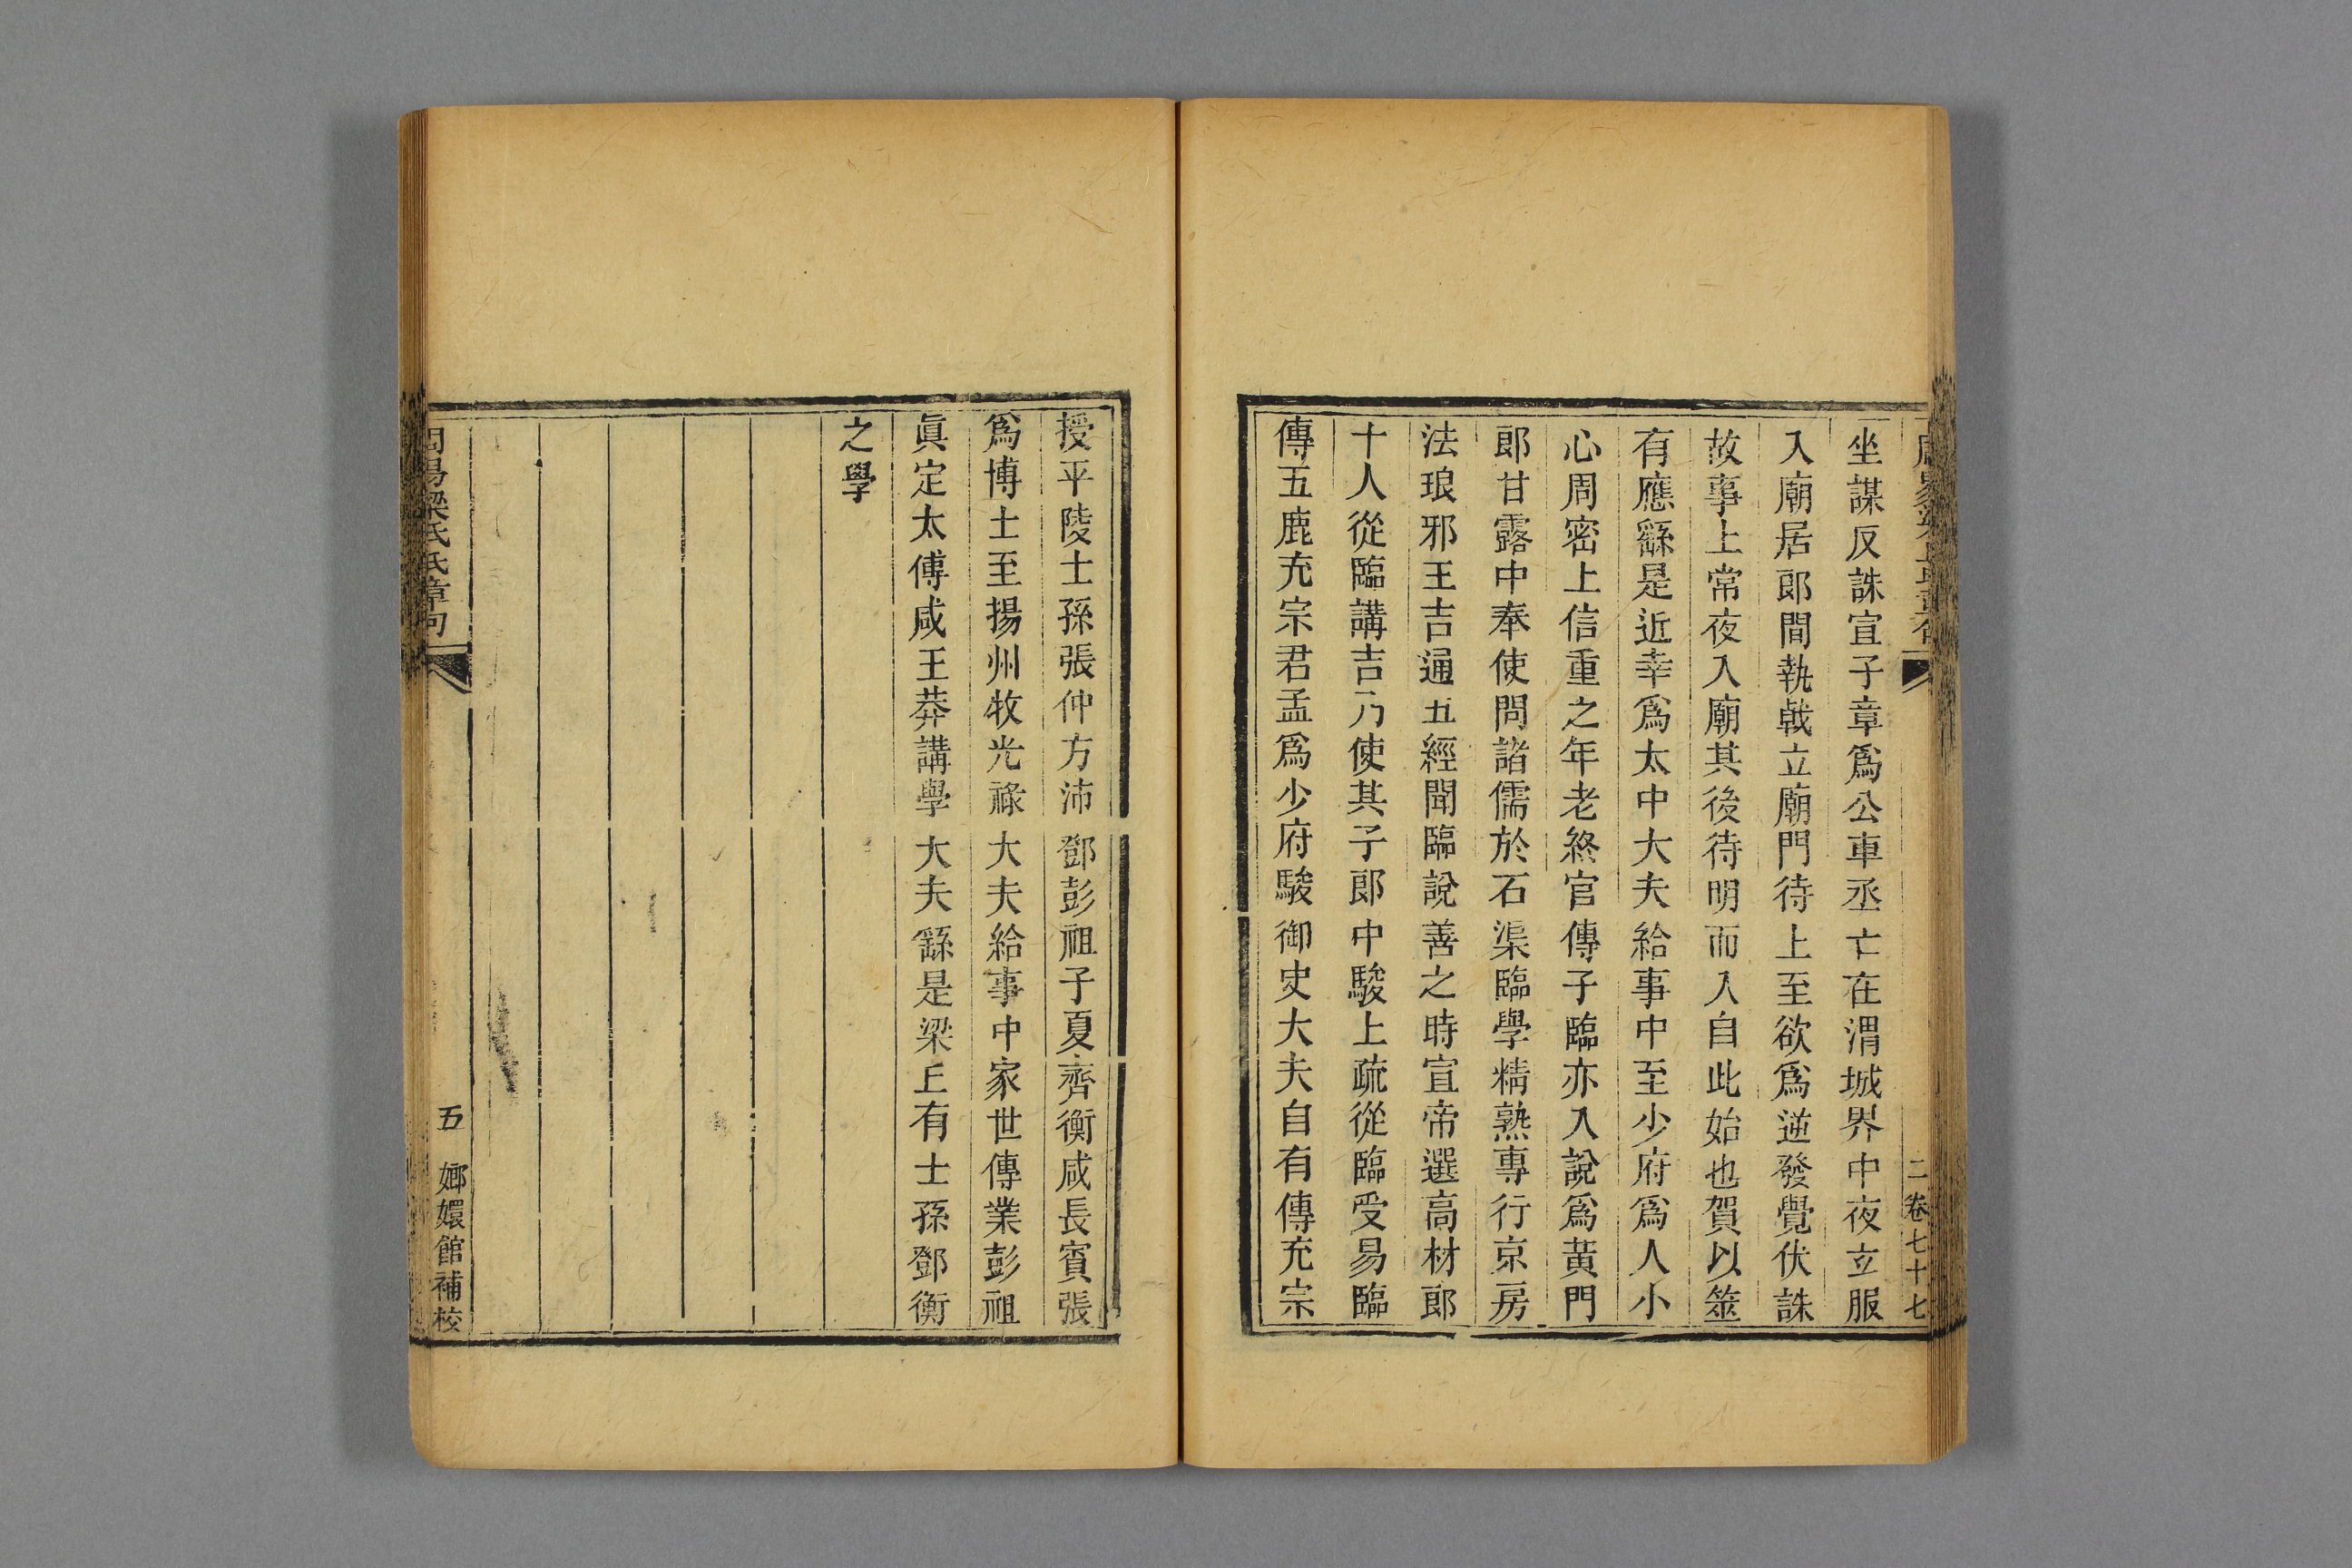 坐謀反誅宣子章爲公車丞亡在渭城界中夜立服
入廟居郎間執戟立廟門待上至欲爲逆發覺伏誅
故事上常夜入廟其後待明而入自此始也賀以筮
有應繇是近幸爲太中大夫給事中至少府爲人小
心周密上信重之年老終官傳子臨亦入說爲黃門
郎甘露中奉使問諸儒於石渠臨學精熟專行京房
法琅邪王吉通五經聞臨說善之時宣帝選高材郎
十人從臨講吉乃使其子郎中駿上疏從臨受易臨
傳五鹿充宗君孟爲少府駿御史大夫自有傳充宗
二 卷七十七
授平陵士孫張仲方沛鄧彭祖子夏齊衡咸長賓張
爲博士至揚州牧光祿大夫給事中家世傳業彭祖
眞定太傅咸王莽講學大夫繇是梁丘有士孫鄧衡
之學
周易梁氏章句
五 嫏嬛館補校